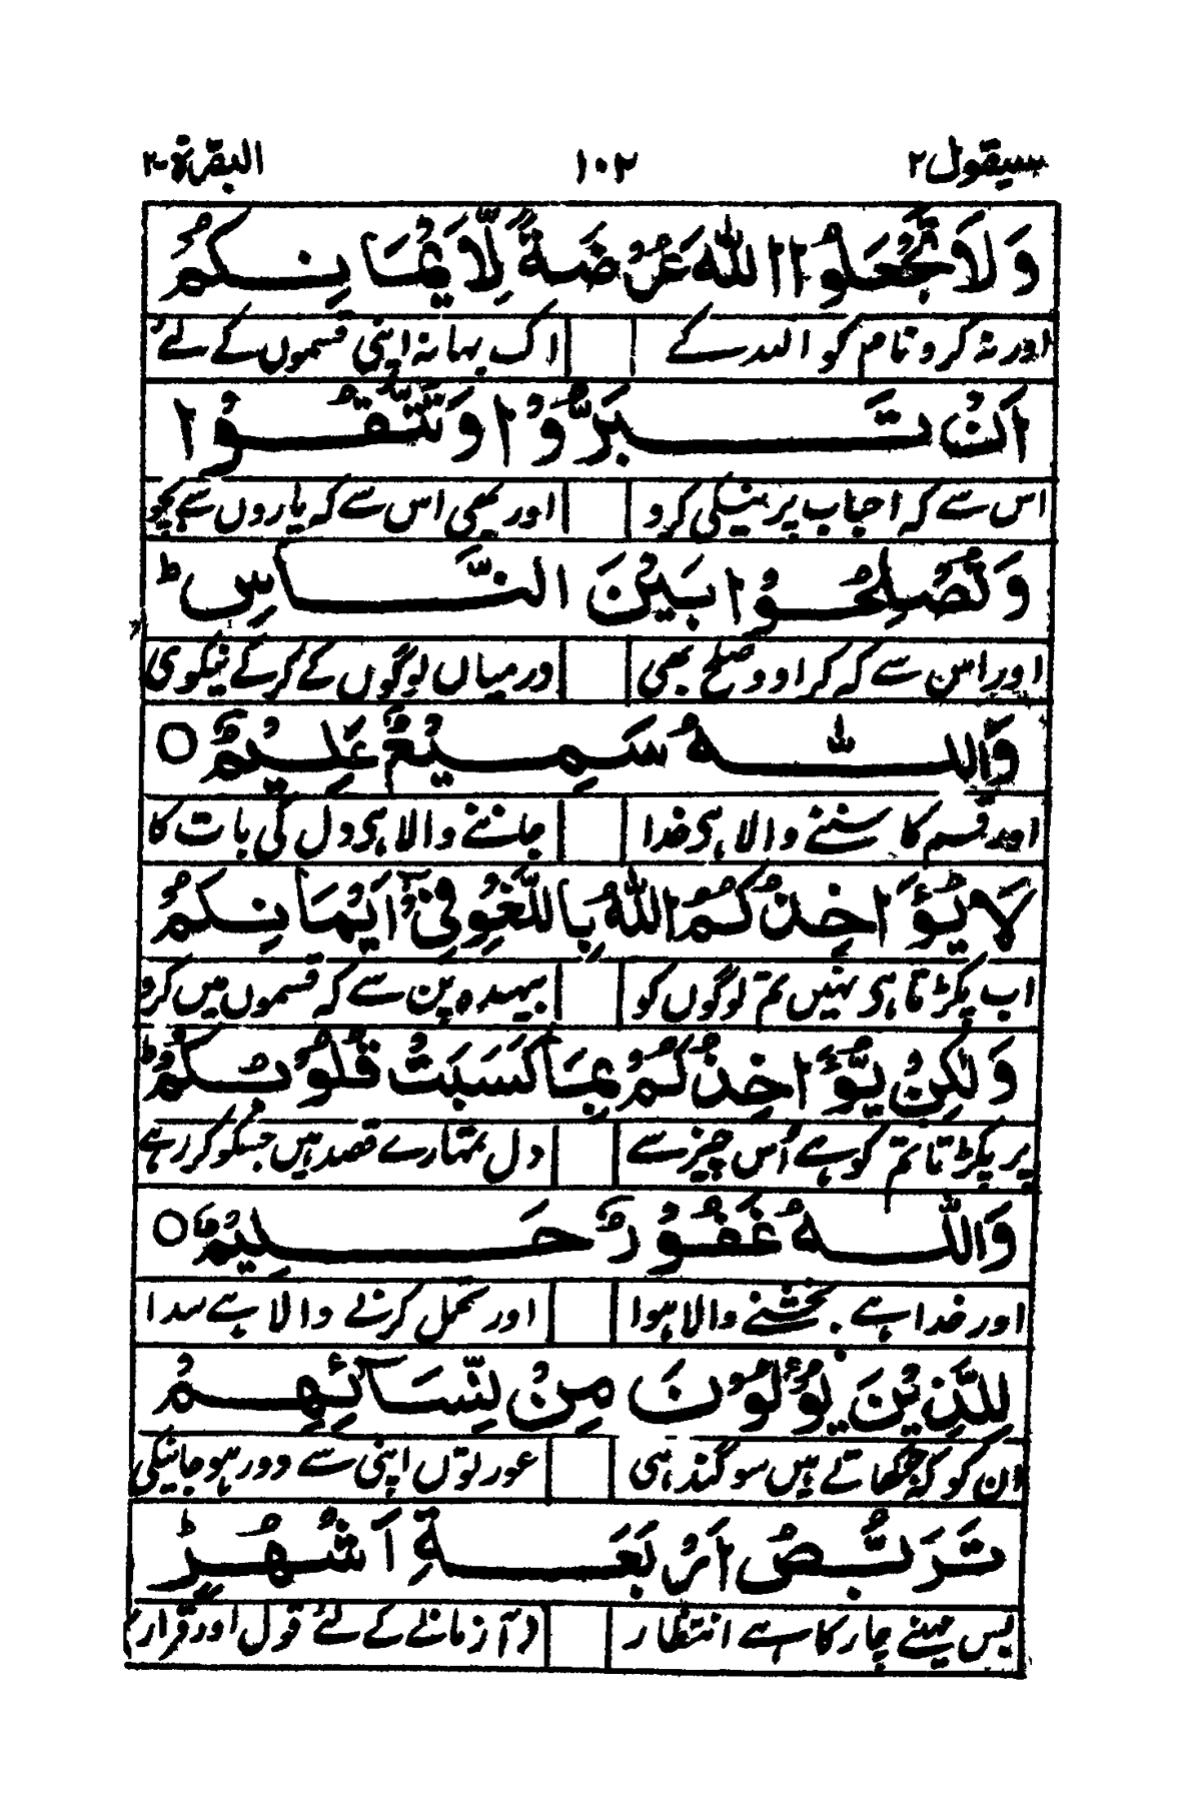 سیقول ۲ ۱۰۲ البقرة ۲
وَلَا تَجْعَلُوا اللّٰهَ عُرْضَةً لِّاَيْمَانِكُمْ
اور نہ کرو نام کو اللہ کے اک بہانہ اپنی قسموں کے لئے
اَنْ تَبَرُّوْا وَتَتَّقُوْا
اس سے کہ احباب پر نیکی کرو اور بھی اس سے کہ یاروں سے بچو
وَتُصْلِحُوْا بَيْنَ النَّاسِ ؕ
اور اس سے کہ کرا دو صلح بھی درمیاں لوگوں کے کر کے نیکوی
وَاللّٰهُ سَمِيْعٌ عَلِيْمٌ ○
اور قسم کا سننے والا ہی خدا جاننے والا ہی دل کی بات کا
لَا يُؤَاخِذُكُمُ اللّٰهُ بِاللَّغْوِ فِيْٓ اَيْمَانِكُمْ
اب پکڑتا ہی نہیں تم لوگوں کو بیہدہ پن سے کہ قسموں میں کرو
وَلٰكِنْ يُّؤَاخِذُكُمْ بِمَا كَسَبَتْ قُلُوْبُكُمْ ؕ
پر پکڑتا تم کو ہے اُس چیز سے دل تمہارے قصد ہیں جسکو کر رہے
وَاللّٰهُ غَفُوْرٌ حَلِيْمٌ ○
اور خدا ہے بخشنے والا ہوا اور تحمل کرنے والا ہے سدا
لِلَّذِيْنَ يُؤْلُوْنَ مِنْ نِّسَآئِهِمْ
ان کو کہ کھاتے ہیں سوگند ہی عورتوں اپنی سے دور ہو جانیکی
تَرَبُّصُ اَرْبَعَةِ اَشْهُرٍ ۚ
بس مہینے چار کا ہے انتظار آزمانے کے لئے قول اور قرار